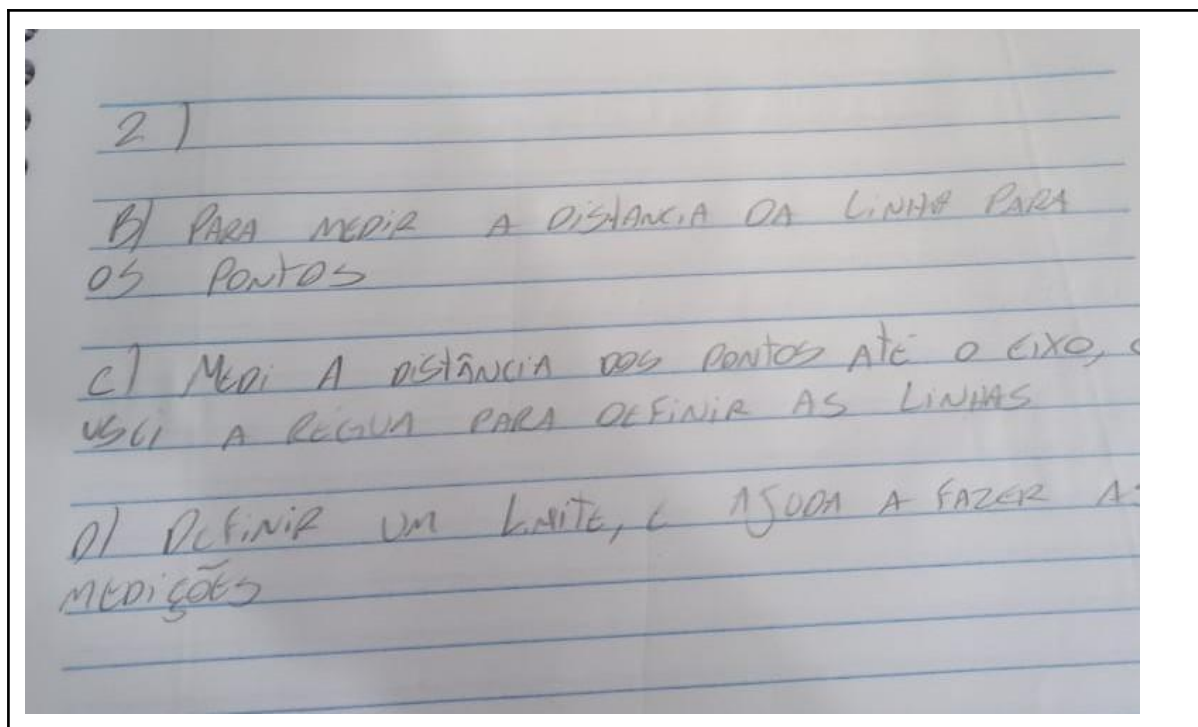 2)
B) PARA MEDIR A DISTANCIA DA LINHA PARA
OS PONTOS
C) MEDI A DISTÂNCIA DOS PONTOS ATÉ O EIXO, E
USEI A RÉGUA PARA DEFINIR AS LINHAS
D) DEFINIR UM LIMITE, E AJUDA A FAZER AS
MEDIÇÕES